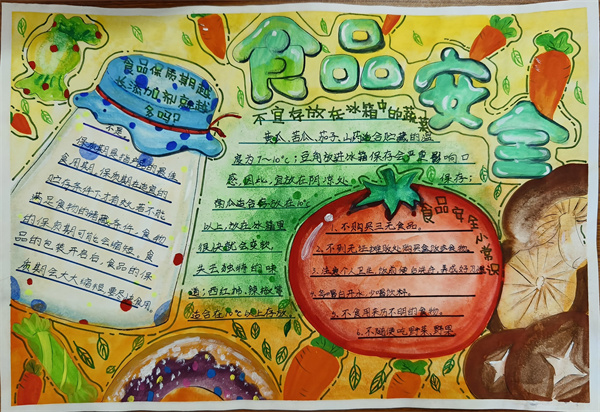 食品安全
食品保质期越
长添加剂就越
多吗？
不是
保质期是指产品的最佳
食用期，保质期在适当的
贮存条件下才有效，若不能
满足食物的储藏条件，食物
的保质期可能会缩短，食
品的包装开启后，食品的保
质期会大大缩短，要尽快食用。
不宜存放在冰箱中的蔬菜
黄瓜、苦瓜、茄子、山药适合贮藏的温
度为7～10℃；豆角放进冰箱保存会严重影响口
感，因此，宜放在阴凉处保存；
南瓜适合存放在10℃
以上，放在冰箱里
很快就会变软，
失去独特的味
道；西红柿、辣椒等
适合在10℃以上存放
食品安全小常识
1、不购买三无食品。
2、不到无法摊贩处购买食饮类食物。
3、注意个人卫生，饭前便后洗手，养成好习惯
4、多喝白开水，少喝饮料。
5、不食用来历不明的食物。
6、不随便吃野菜、野果